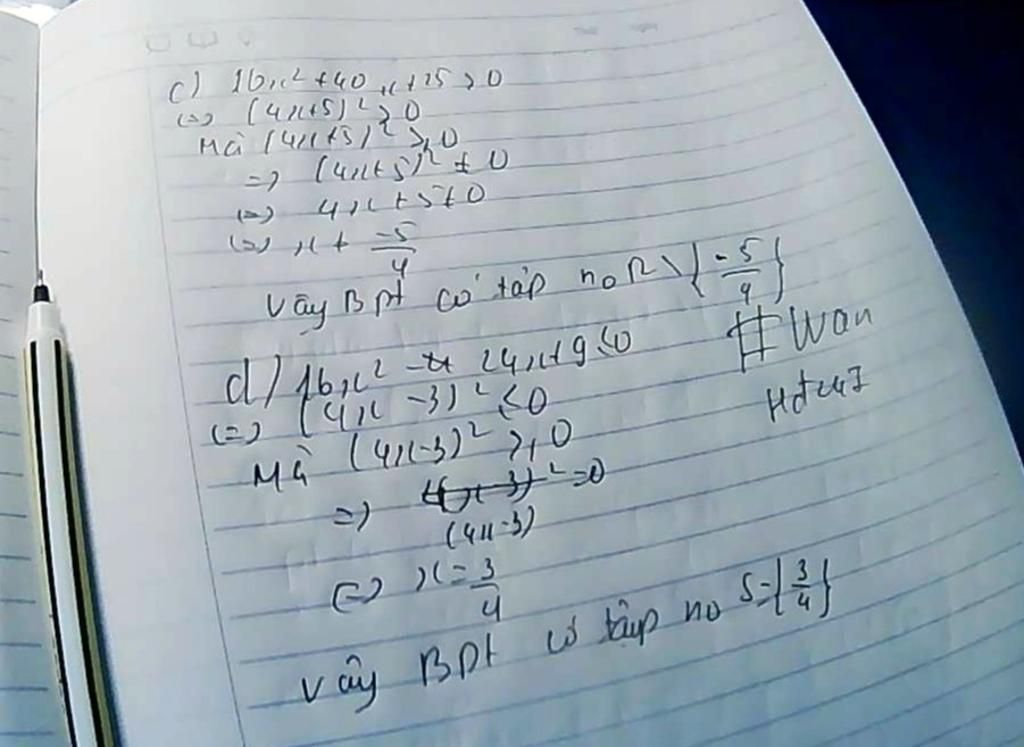 c) 16x² + 40x + 25 > 0
(=) (4x+5)² > 0
Mà (4x+5)² ≥ 0
=> (4x+5)² ≠ 0
(=) 4x + 5 ≠ 0
(=) x ≠ -5/4
Vậy Bpt có tập no R \ {-5/4}
d) 16x² - 24x + 9 ≤ 0
(=) (4x - 3)² ≤ 0
Mà (4x-3)² ≥ 0
=> (4x-3)² = 0
(=) x = 3/4
Vậy Bpt có tập no S = {3/4}
# Wan